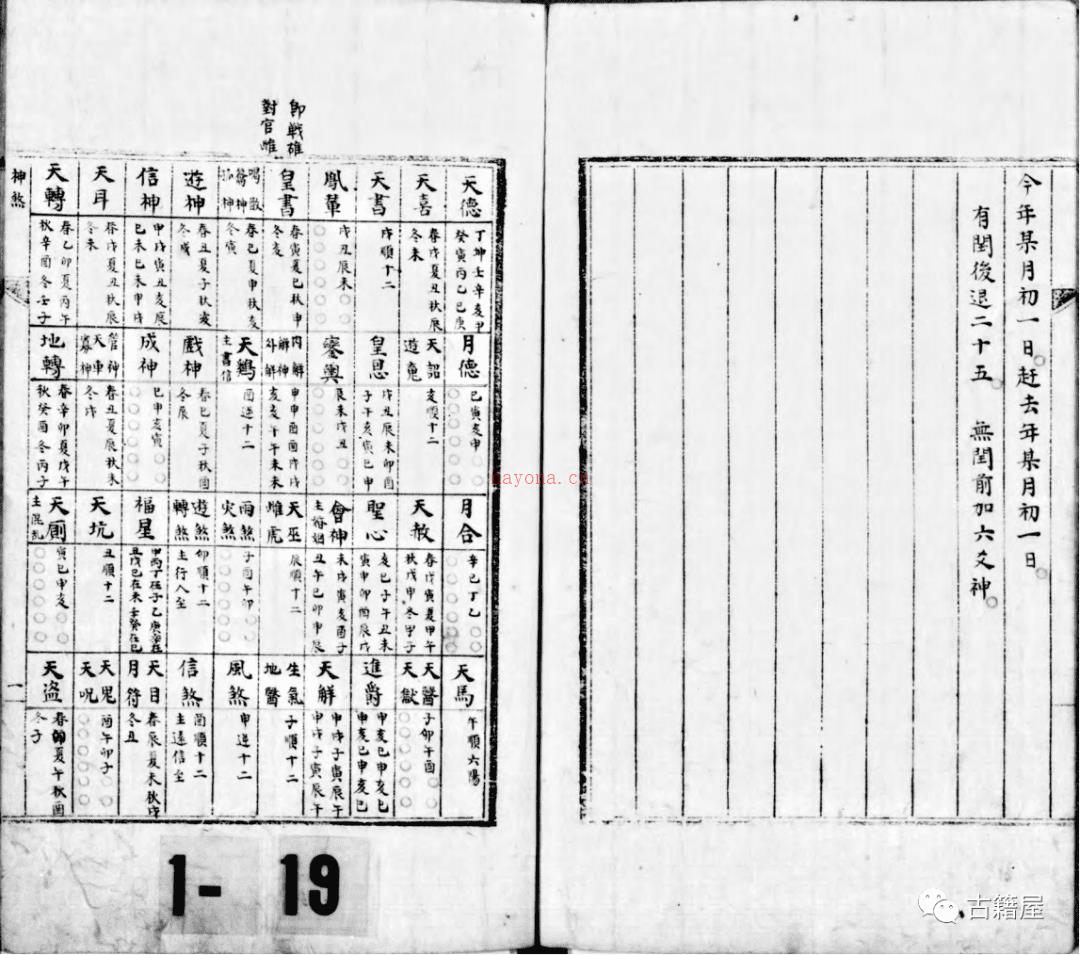 今年某月初一日赶去年某月初一日
有閏後退二十五 無閏前加六爻神
即戰雄
對官雌
天德
丁坤士辛亥甲
癸寅丙乙巳庚
月德
巳寅亥申
月合
辛己丁乙
天馬
午順六陽
天喜
春戌夏丑秋辰
冬未
天詔
遊魂
亥順十二
天赦
春戊寅夏甲午
秋戊申冬甲子
天醫
天獄
子卯午酉
天書
戌順十二
皇恩
戌丑辰未卯酉
子午亥寅巳申
聖心
亥巳子午丑未
寅申卯酉辰戌
進爵
申亥巳申亥巳
申亥巳申亥巳
鳳輦
戌丑辰未
鑾輿
辰未戌丑
會神
主婚姻
未戌寅亥酉子
丑午巳卯申辰
天解
申戌子寅辰午
申戌子寅辰午
皇書
春寅夏巳秋申
冬亥
內解
解神
外解
申申酉酉戌戌
亥亥午午未未
天巫
雌虎
辰順十二
生氣
地醫
子順十二
喝散
春巳夏申秋亥
冬寅
天鷄
主書信
酉逆十二
雨煞
灾煞
子酉午卯
風煞
申逆十二
遊神
春丑夏子秋亥
冬戌
戲神
春巳夏子秋酉
冬辰
遊煞
轉煞
卯順十二
主行人至
信煞
酉順十二
主遠信至
信神
申戌寅丑亥辰
巳未巳未申戌
成神
巳申亥寅
福星
天目
月符
春辰夏未秋戌
冬丑
天耳
春戌夏丑秋辰
冬未
管神
天車
寡神
春丑夏辰秋未
冬戌
天坑
丑順十二
天鬼
天呪
酉午卯子
天轉
春乙卯夏丙午
秋辛酉冬壬子
地轉
春辛卯夏戊午
秋癸酉冬丙子
天厠
主混乱
寅巳申亥
天盗
春卯夏午秋酉
冬子
神煞
一
nayona.cn
1- 19
古籍屋